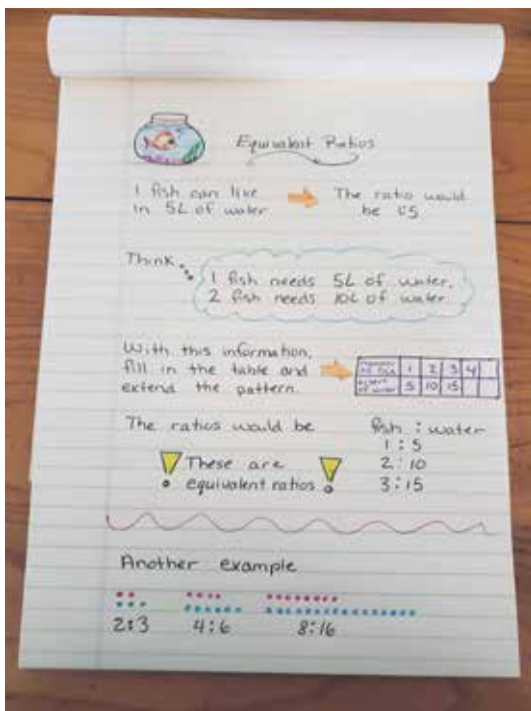 Equivalent Ratios
1 fish can live
in 5L of water
The ratio would
be 1:5
Think
1 fish needs 5L of water.
2 fish needs 10L of water
With this information,
fill in the table and
extend the pattern.
Number of fish 1 2 3 4
of water 5 10 15
The ratios would be
fish : water
1 : 5
2 : 10
3 : 15
These are
equivalent ratios
Another example
2:3 4:6 8:16